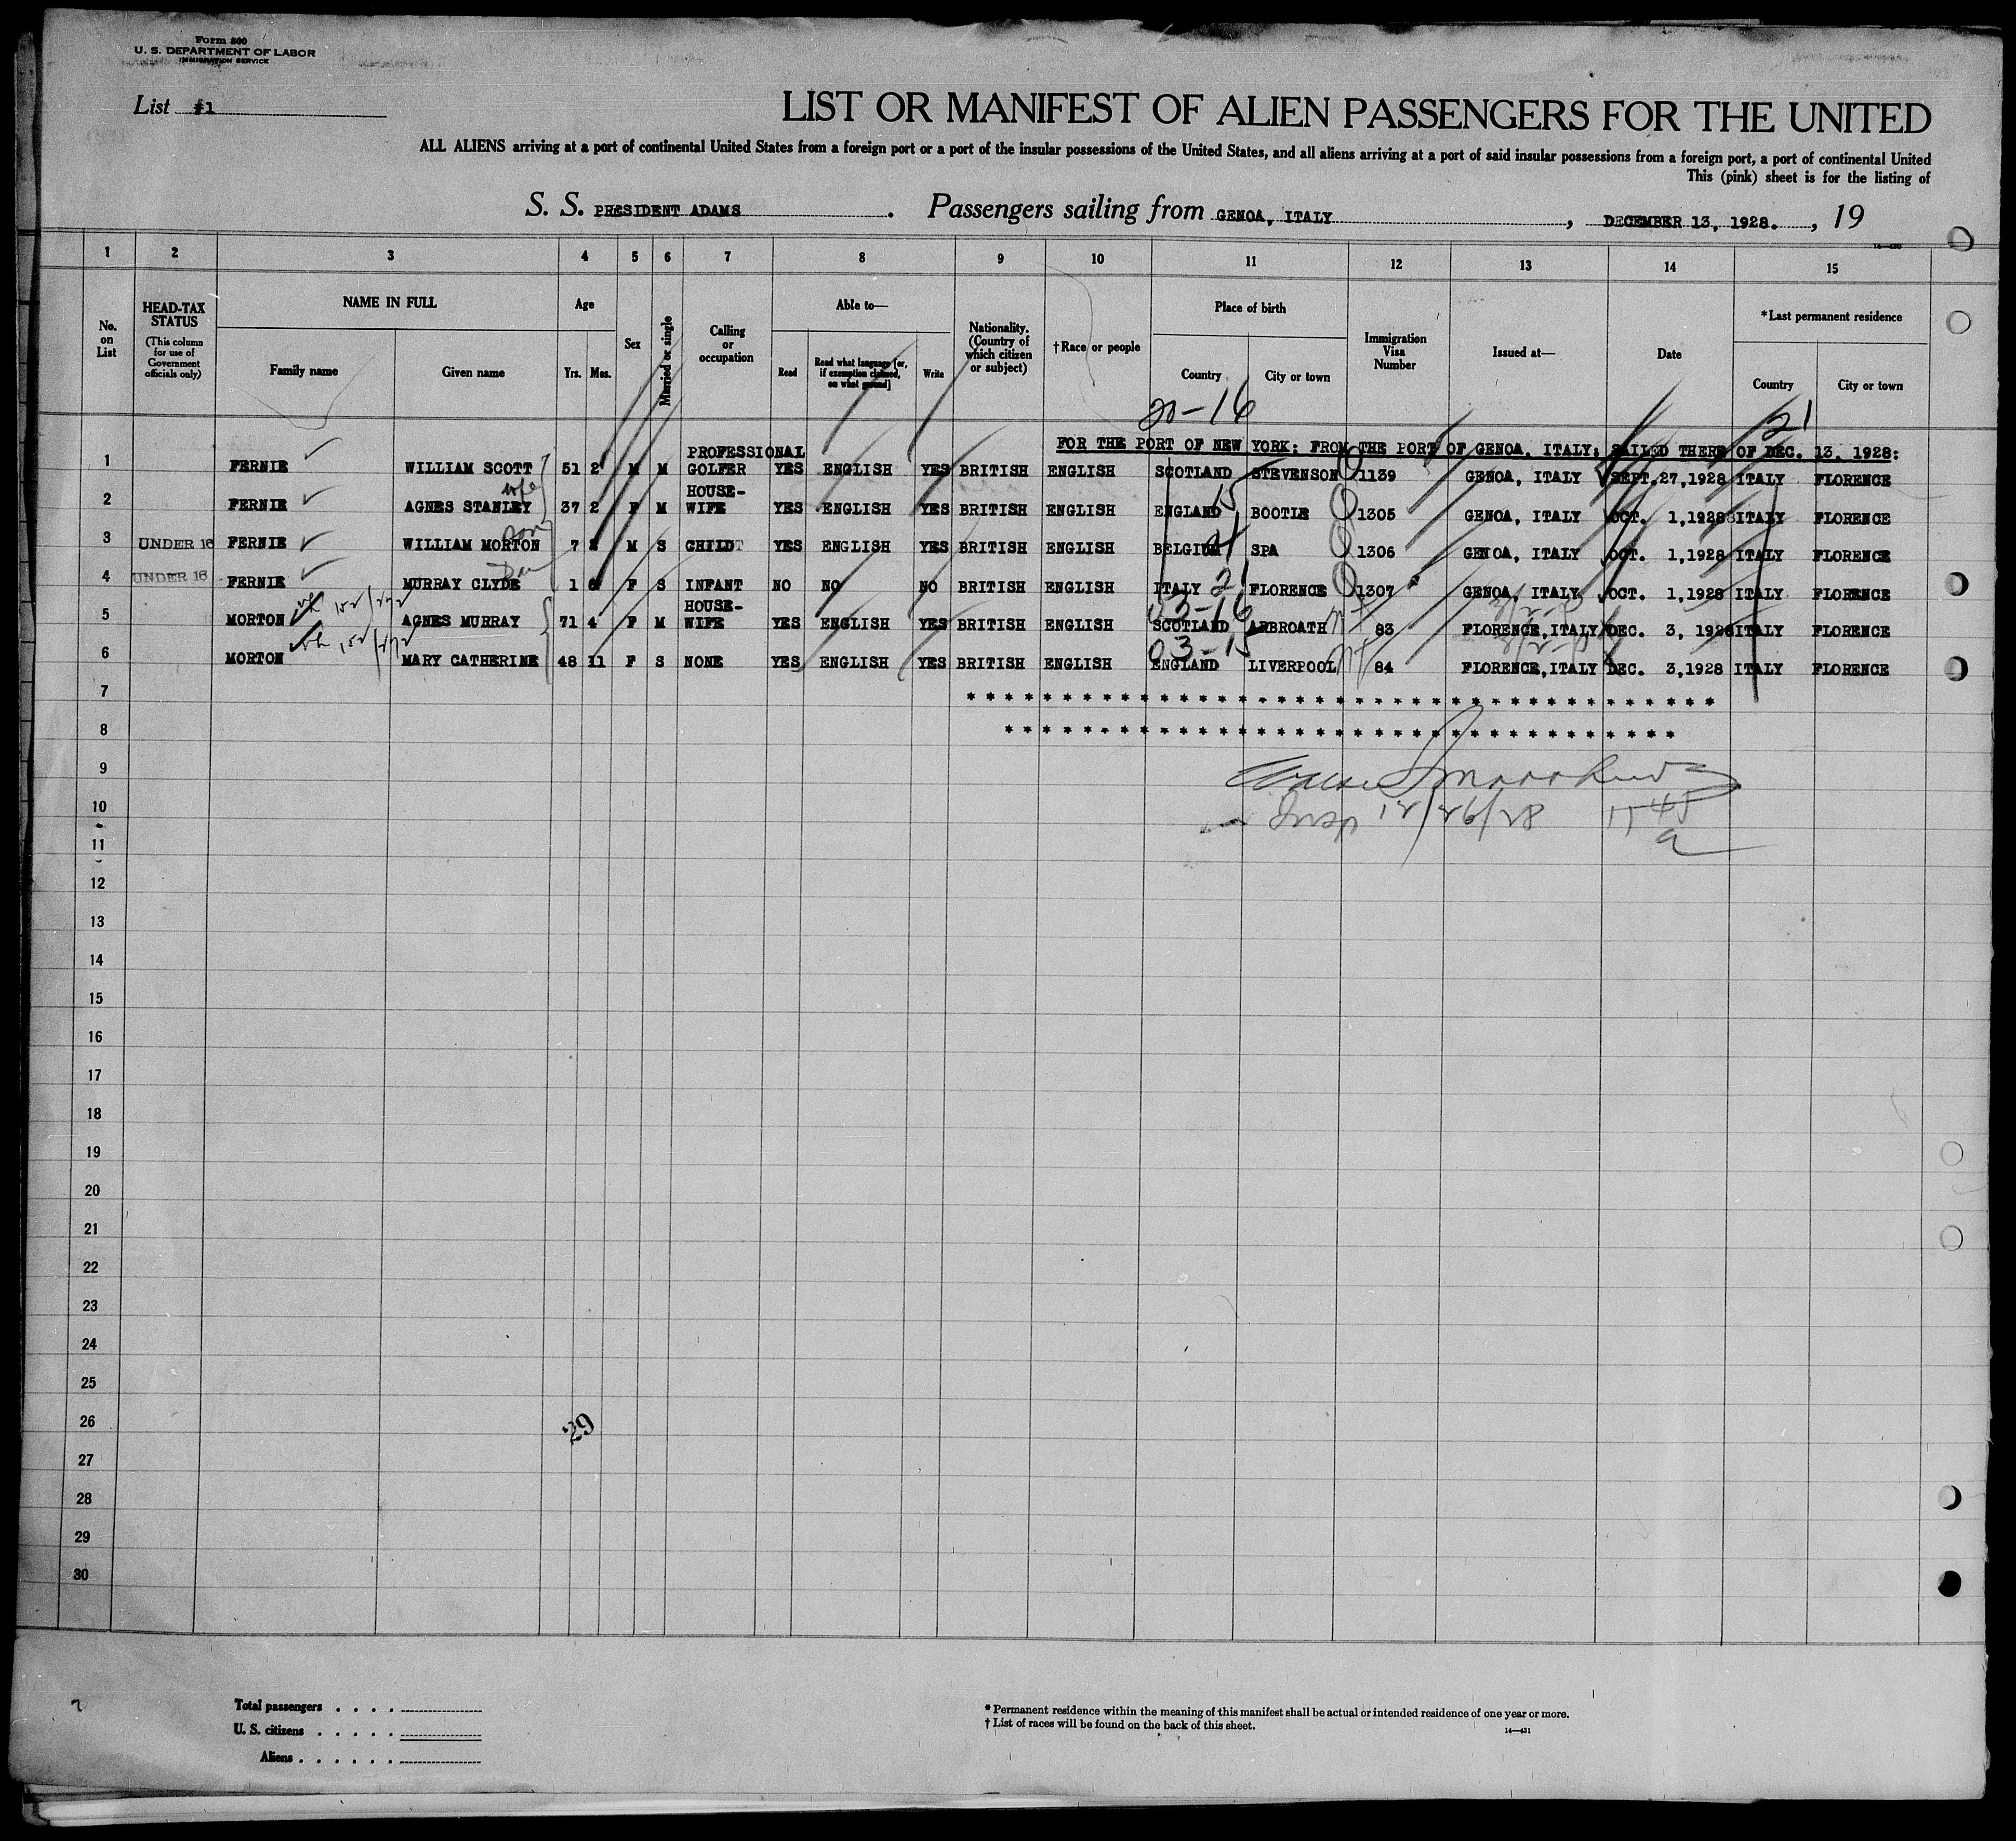 Form 500
U. S. DEPARTMENT OF LABOR
IMMIGRATION SERVICE
List #1
LIST OR MANIFEST OF ALIEN PASSENGERS FOR THE UNITED
ALL ALIENS arriving at a port of continental United States from a foreign port or a port of the insular possessions of the United States, and all aliens arriving at a port of said insular possessions from a foreign port, a port of continental United
This (pink) sheet is for the listing of
S. S. PRESIDENT ADAMS. Passengers sailing from GENOA, ITALY, DECEMBER 13, 1928., 19
1 2 3 4 5 6 7 8 9 10 11 12 13 14 15
No. on List
HEAD-TAX STATUS (This column for use of Government officials only)
NAME IN FULL
Family name Given name
Age
Yrs. Mos.
Sex
Married or single
Calling or occupation
Able to—
Read Read what language [or, if exemption claimed, on what ground] Write
Nationality. (Country of which citizen or subject)
†Race or people
Place of birth
Country City or town
Immigration Visa Number
Issued at—
Date
*Last permanent residence
Country City or town
20-16 21
FOR THE PORT OF NEW YORK: FROM THE PORT OF GENOA, ITALY; SAILED THERE OF DEC. 13, 1928:
1 FERNIE WILLIAM SCOTT 51 2 M M PROFESSIONAL GOLFER YES ENGLISH YES BRITISH ENGLISH SCOTLAND STEVENSON 1139 GENOA, ITALY SEPT.27,1928 ITALY FLORENCE
wife 15
2 FERNIE AGNES STANLEY 37 2 F M HOUSE-WIFE YES ENGLISH YES BRITISH ENGLISH ENGLAND BOOTLE 1305 GENOA, ITALY OCT. 1,1928 ITALY FLORENCE
son
3 UNDER 16 FERNIE WILLIAM MORTON 7 M S CHILD YES ENGLISH YES BRITISH ENGLISH BELGIUM SPA 1306 GENOA, ITALY OCT. 1,1928 ITALY FLORENCE
4 UNDER 16 FERNIE MURRAY CLYDE 1 6 F S INFANT NO NO NO BRITISH ENGLISH ITALY 21 FLORENCE 1307 GENOA, ITALY OCT. 1,1928 ITALY FLORENCE
03-16
5 MORTON AGNES MURRAY 71 4 F M HOUSE-WIFE YES ENGLISH YES BRITISH ENGLISH SCOTLAND ARBROATH 83 FLORENCE,ITALY DEC. 3, 1928 ITALY FLORENCE
03-15
6 MORTON MARY CATHERINE 48 11 F S NONE YES ENGLISH YES BRITISH ENGLISH ENGLAND LIVERPOOL 84 FLORENCE,ITALY DEC. 3,1928 ITALY FLORENCE
7 * * * * * * * * * * * * * * * * * * * * * * * * * * * * * * * * * * *
8 * * * * * * * * * * * * * * * * * * * * * * * * * * * * * *
9
10 Insp 12/26/28 1145
11 a
12
13
14
15
16
17
18
19
20
21
22
23
24
25
26 29
27
28
29
30
Total passengers . . . .
U. S. citizens . . . . .
Aliens . . . . . .
* Permanent residence within the meaning of this manifest shall be actual or intended residence of one year or more.
† List of races will be found on the back of this sheet.
14—431